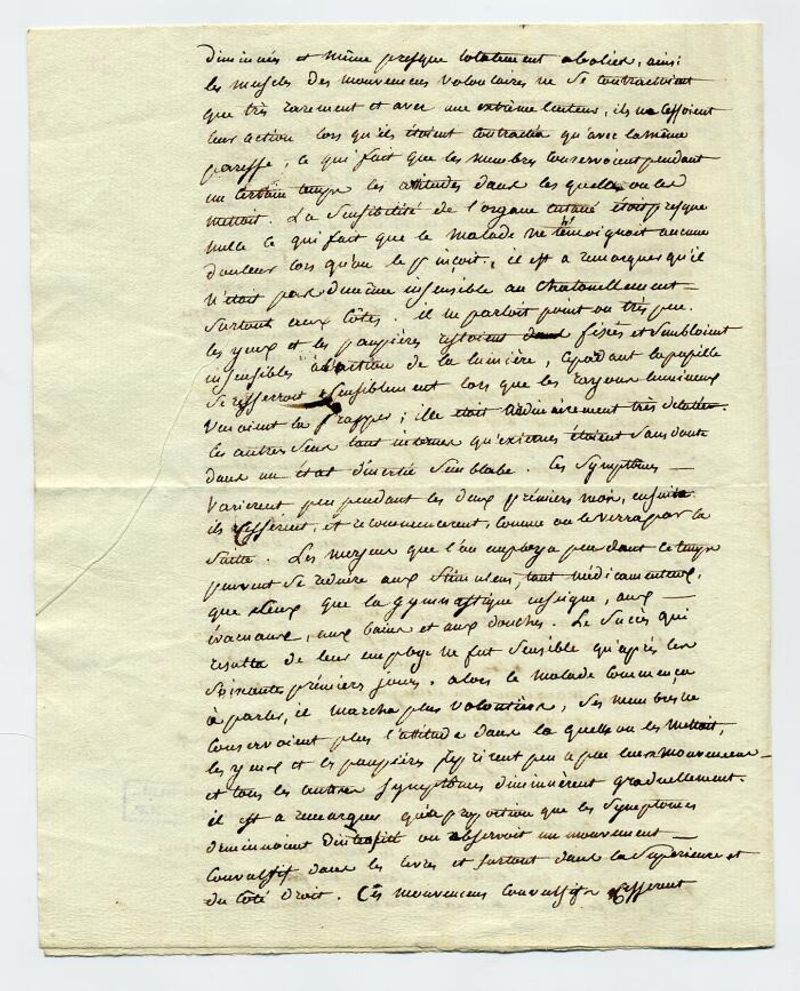 diminués et même presque totalement abolies, ainsi
les muscles des mouvemens volontaires ne se contractoient
que très rarement et avec une extrême lenteur, ils ne cessoient
leur action lors qu'ils étoient contractés qu'avec la même
paresse, ce qui fait que les membres conservoient pendant
un certain temps les attitudes dans les quelles on les
mettoit. La sensibilité de l'organe cutané étoit presque
nulle ce qui fait que le malade ne témoignoit aucune
douleur lors qu'on le pinçoit, il est a remarquer qu'il
n'étoit pas de même insensible au chatouillement
surtout aux côtes. il ne parloit point ou très peu.
les yeux et les paupières restoient fixés et sembloient
insensibles à l'action de la lumière, cependant la pupille
se resserroit sensiblement lors que les rayons lumineux
venoient la frapper; elle étoit ordinairement très dilatée.
les autres sens tant internes qu'externes étoient sans doute
dans un état d'inertie semblable. Ces symptômes
varièrent peu pendant les deux prémiers mois, ensuite
ils cessèrent, et recommencerent, comme on le verra par la
suitte. Les moyens que l'on employa pendant ce temps
peuvent se réduire aux stimulens, tant médicamenteux,
que ceux que la gymnastique enseigne, aux
évacuans, aux bains et aux douches. Le succès qui
resulta de leur employ ne fut sensible qu'après les
soixante prémiers jours. alors le malade commença
à parler, il marcha plus volontiers, ses membres ne
conservoient plus l'attitude dans la quelle on les mettoit,
les yeux et les paupières reprirent peu a peu leurs mouvemens
et tous les autres symptômes diminuèrent graduellement.
il est a remarquer qu'à proportion que les symptomes
diminuoient d'intensité on observoit un mouvement
convulsif dans les levres et surtout dans la supérieure et
du côté droit. Ces mouvemens convulsifs cesserent